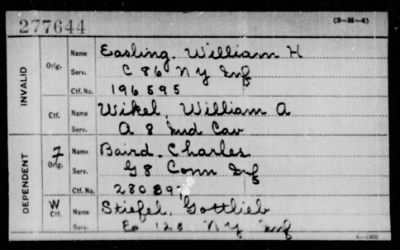 277644 (3-M-4)
INVALID
Orig. Name Easling, William H
Serv. C 86 N Y Inf
Ctf. No. 196595
Ctf. Name Wikel, William A
Serv. A 8 Ind Cav
DEPENDENT
7 Orig. Name Baird, Charles
Serv. G 8 Conn Inf
Ctf. No.
W Ctf. Name Stiefel, Gottlieb
Serv. N Y Inf